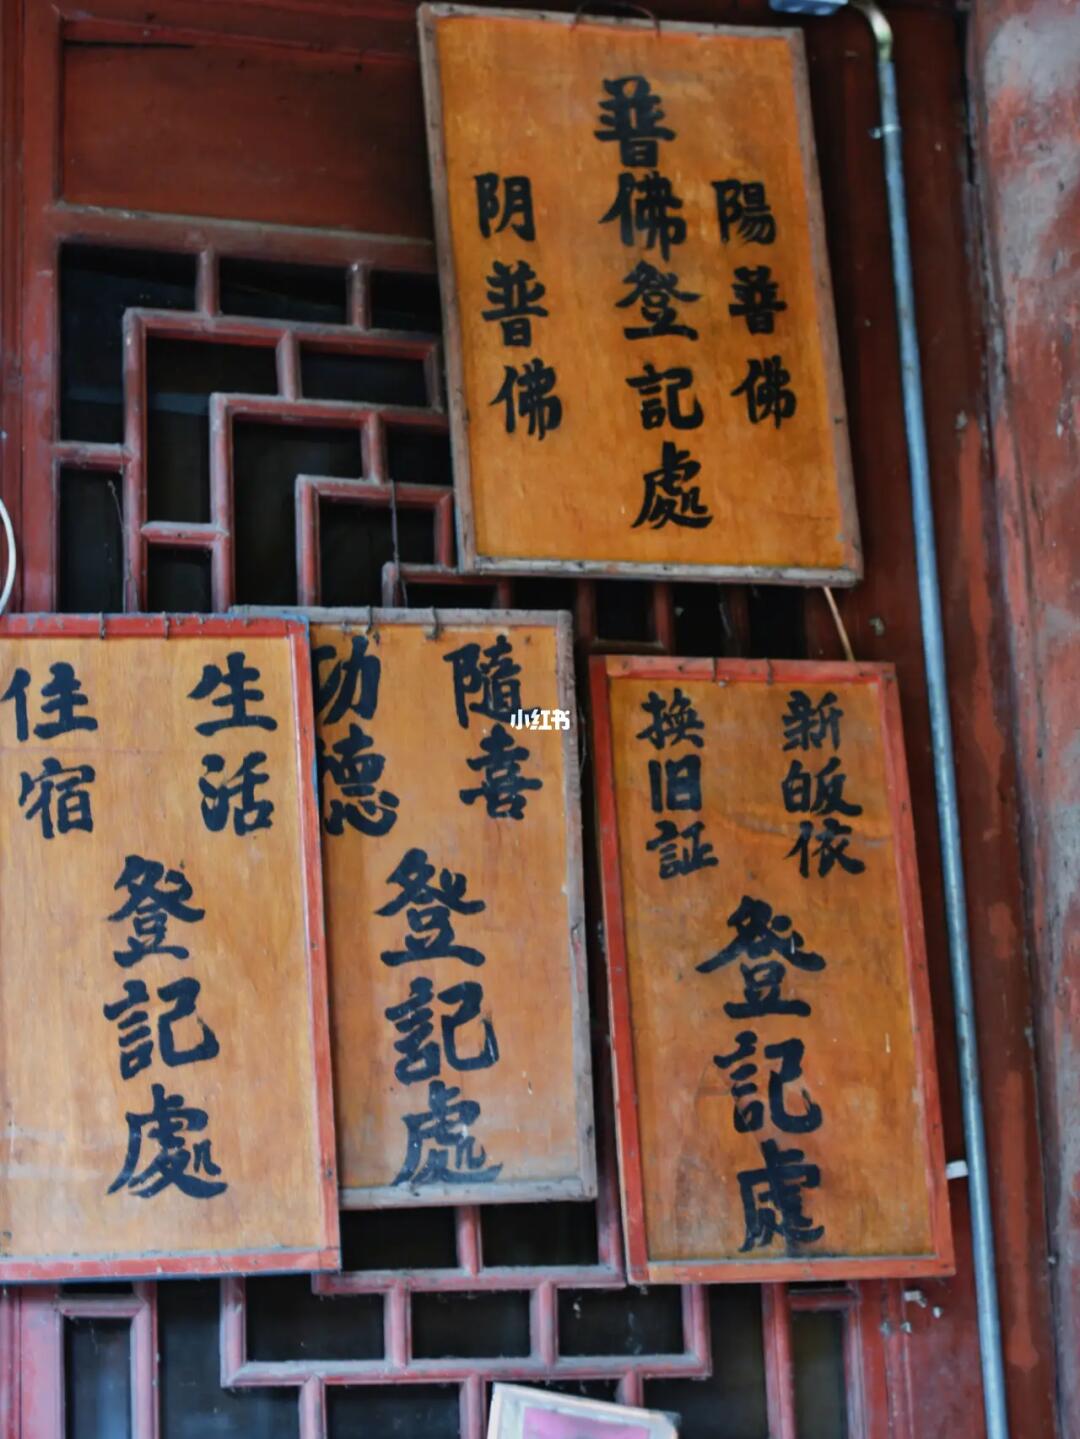 陽普佛
普佛登記處
阴普佛
生活
住宿
登記處
隨喜
功德
登記處
小红书
新皈依
換旧証
登記處